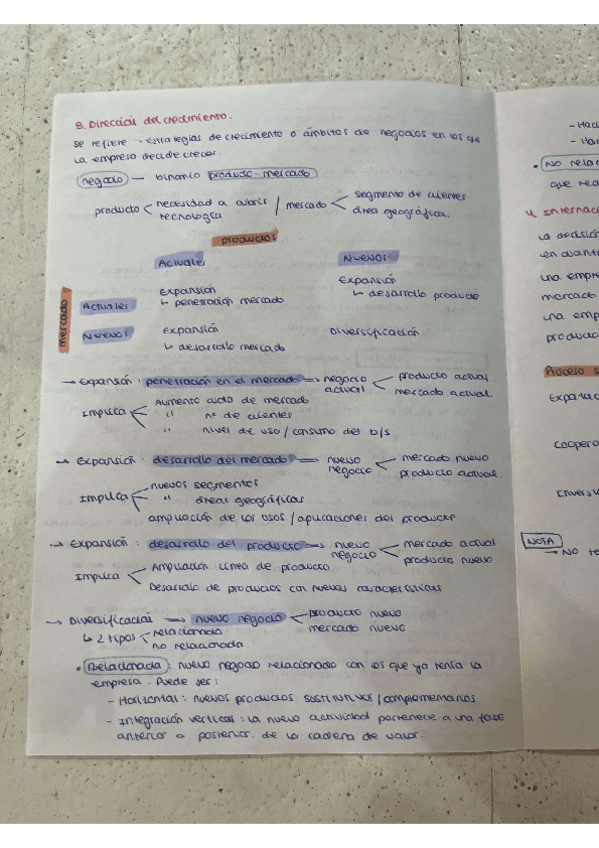 3. Dirección del crecimiento.
se refiere → estrategias de crecimiento o ámbitos de negocios en los que
la empresa decide crecer.
negocio — binomio producto-mercado
producto < necesidad a cubrir / tecnología
mercado < segmento de clientes / área geográfica.
productos
Actuales Nuevos
mercado
Actuales Expansión ↳ penetración mercado Expansión ↳ desarrollo producto
Nuevos Expansión ↳ desarrollo mercado Diversificación
→ Expansión: penetración en el mercado → negocio actual < producto actual / mercado actual
Implica < Aumento cuota de mercado
" nº de clientes
" nivel de uso/consumo del b/s
→ Expansión: desarrollo del mercado → nuevo negocio < mercado nuevo / producto actual.
Implica < nuevos segmentos
" áreas geográficas
ampliación de los usos/aplicaciones del producto
→ Expansión: desarrollo del producto → nuevo negocio < mercado actual / producto nuevo
Implica < Ampliación línea de producto
Desarrollo de productos con nuevas características
→ Diversificación → nuevo negocio < producto nuevo / mercado nuevo
↳ 2 tipos < relacionada
no relacionada
• Relacionada: nuevo negocio relacionado con los que ya tenía la
empresa. Puede ser:
- Horizontal: nuevos productos sustitutivos/complementarios
- Integración vertical: la nueva actividad pertenece a una fase
anterior o posterior de la cadena de valor.
- Hac
- Ha
• No rela
que rea
4. Internac
La decisión
en cuanto
una empre
mercado
una emp
producto
Acceso
Exporta
Coopera
Invers
NOTA
→ No to